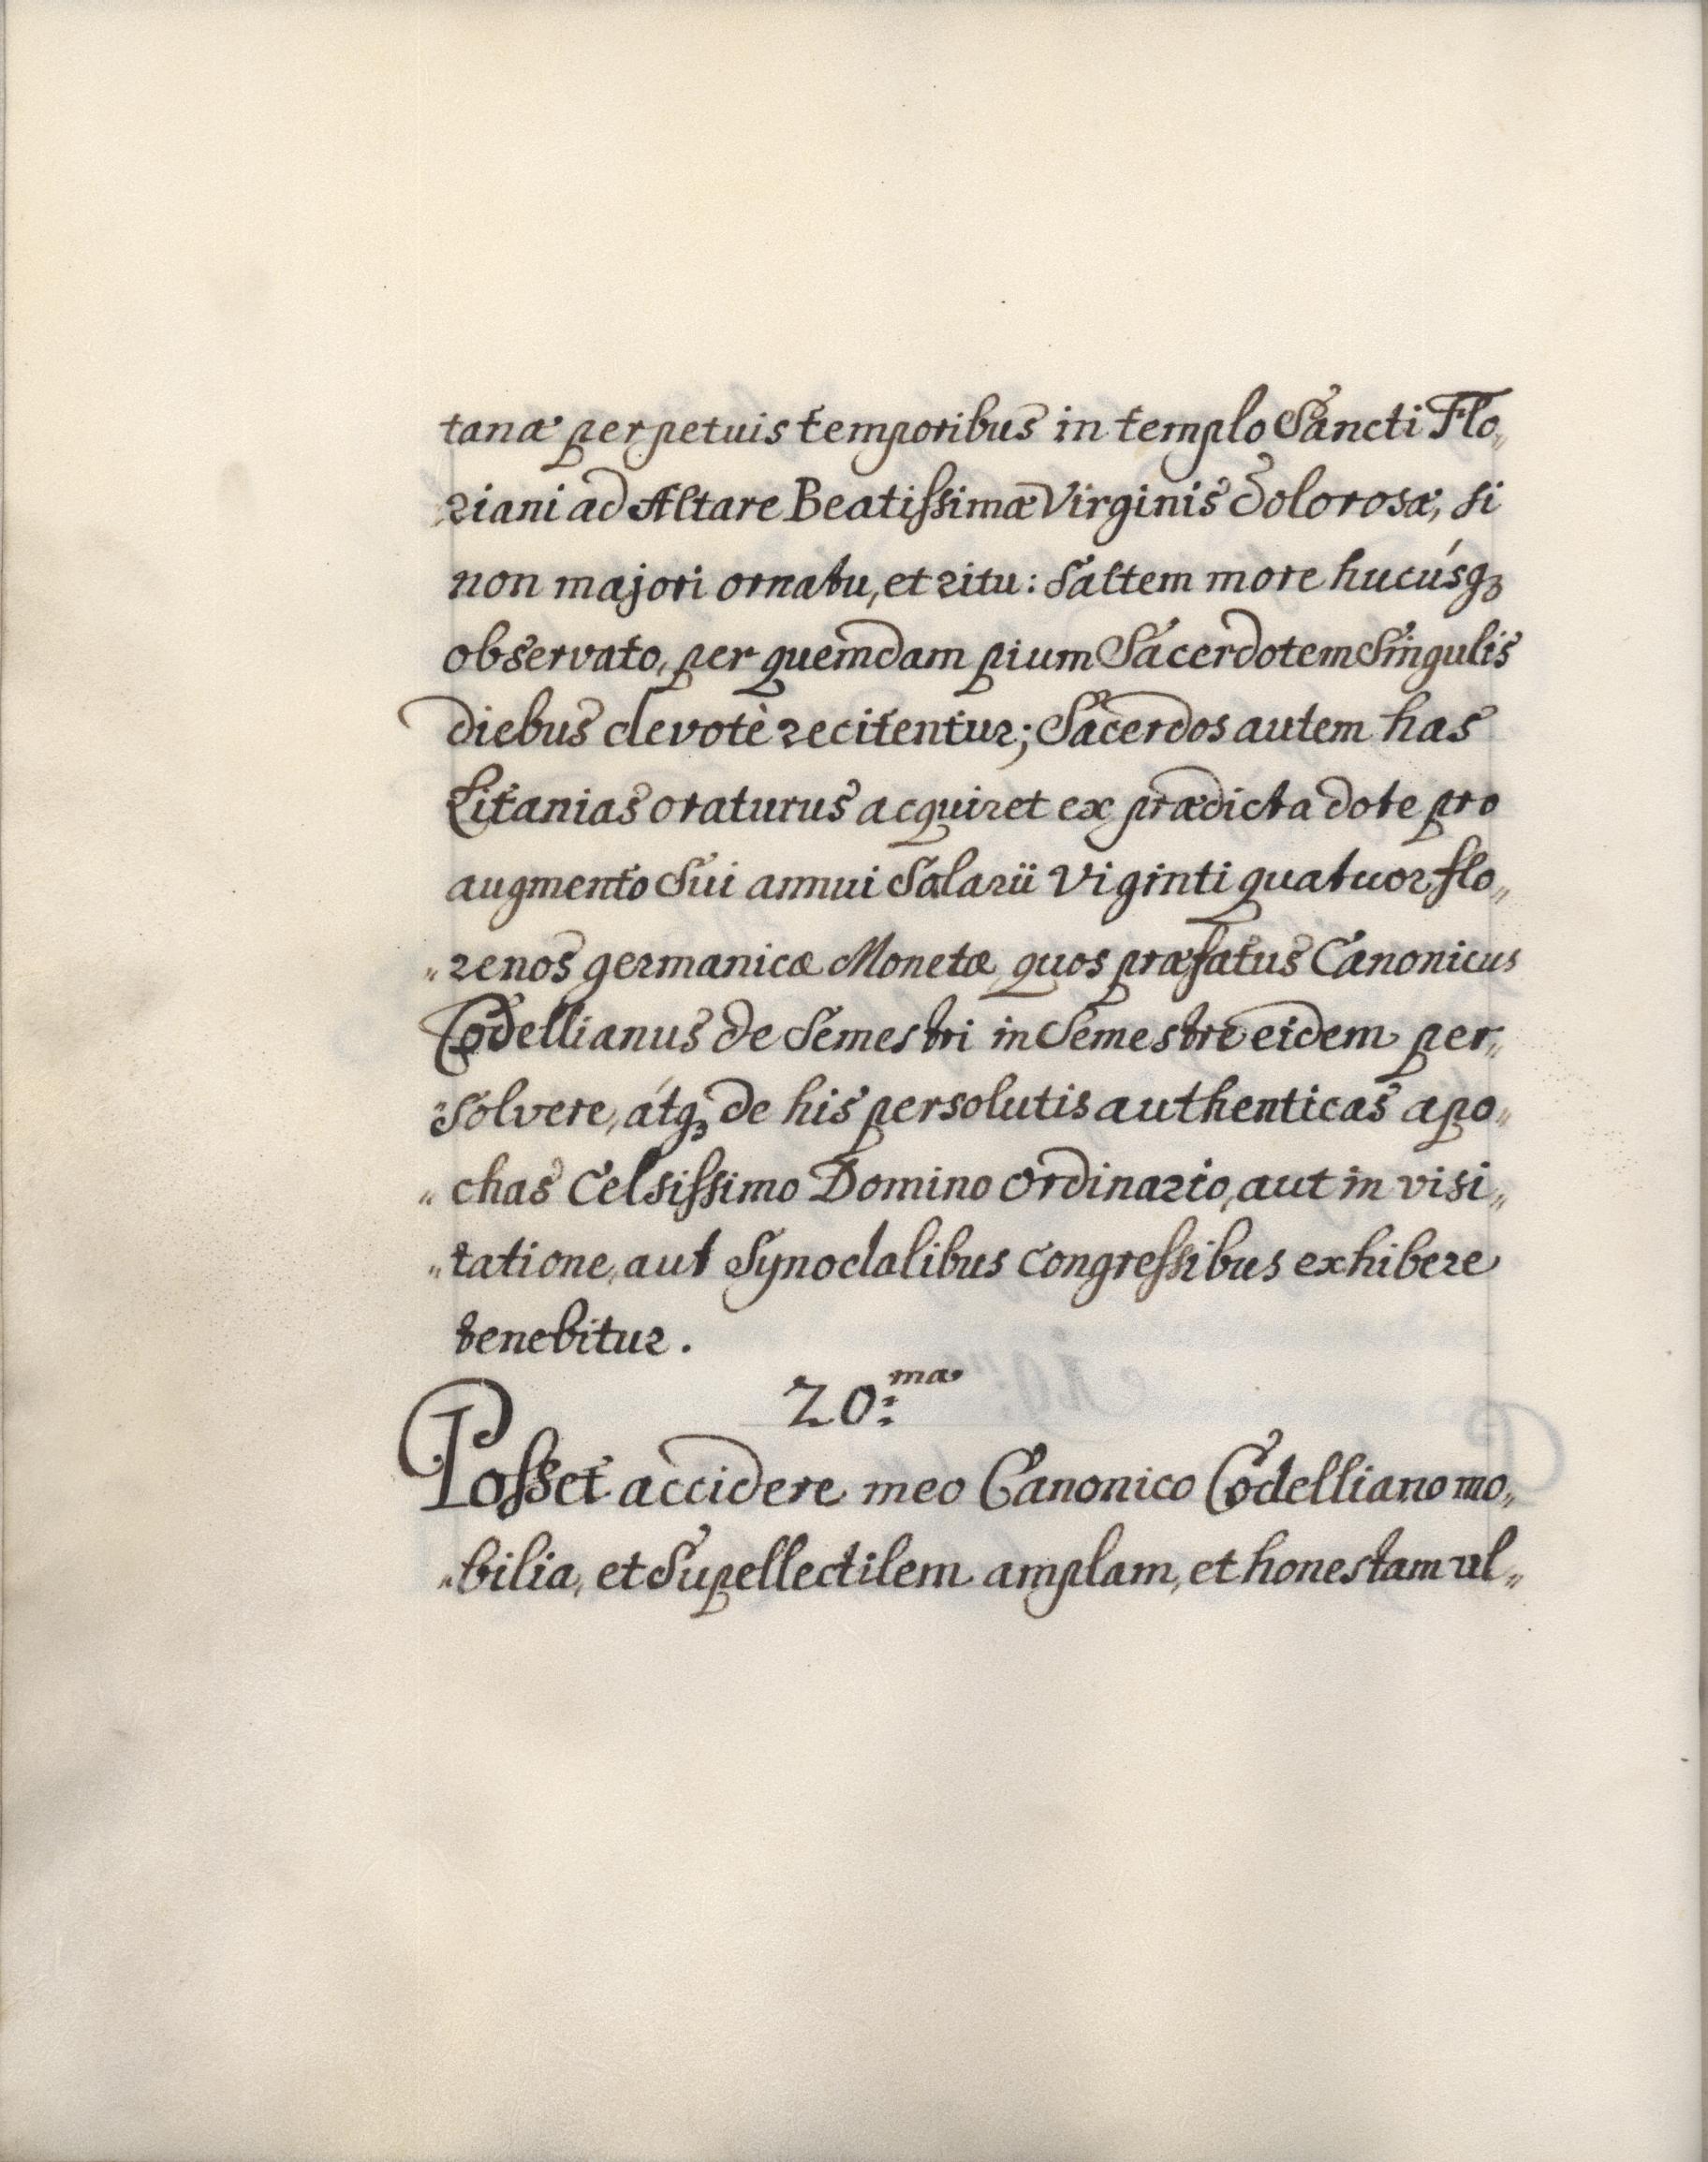 tanæ perpetuis temporibus in templo Sancti Flo„
riani ad Altare Beatissimæ Virginis Dolorosæ, si
non majori ornatu, et ritu: saltem more hucúsq3
observato, per quemdam pium Sacerdotem Singulis
diebus devotè recitentur; Sacerdos autem has
Litanias oraturus acquiret ex prædicta dote pro
augmento Sui annui Salarii Viginti quatuor flo„
„renos germanicæ Monetæ, quos præfatus Canonicus
Codellianus de Semestri in Semestre eidem per„
„solvere, átq3 de his persolutis authenticas apo„
„chas Celsissimo Domino Ordinario, aut in visi„
„tatione, aut Synodalibus congressibus exhibere
tenebitur.
20:ma
Posset accidere meo Canonico Codelliano mo„
„bilia, et Supellectilem amplam, et honestam ul„